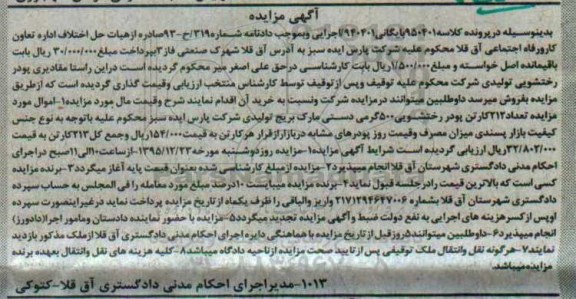 آگهی مزایده
بدینوسیله در پرونده کلاسه ۹۵۰۴۰۱ بایگانی ۹۴۰۴۰۱ اجرایی وبموجب دادنامه شماره ۳۱۹/ح-۹۳ صادره از هیات حل اختلاف اداره تعاون
کارورفاه اجتماعی آق قلا محکوم علیه شرکت پارس ایده سبز به آدرس آق قلا شهرک صنعتی فاز ۲ بپرداخت مبلغ ۳۰/۰۰۰/۰۰۰ ریال بابت
باقیمانده اصل خواسته و مبلغ ۱/۵۰۰/۰۰۰ ریال بابت کارشناسی در حق علی اصغر میر محکوم گردیده است دراین راستا مقادیری پودر
رختشویی تولیدی شرکت محکوم علیه توقیف وپس از توقیف توسط کارشناس منتخب ارزیابی وقیمت گذاری گردیده است که از طریق
مزایده بفروش میرسد داوطلبین میتوانند در مزایده شرکت ونسبت به خرید آن اقدام نمایند شرح وقیمت مال مورد مزایده ۱-اموال مورد
مزایده تعداد ۲۱۳ کارتن پودر رختشویی ۵۰۰ گرمی دستی مارک بریج تولیدی شرکت پارس ایده سبز محکوم علیه باتوجه به نوع جنس
کیفیت بازار پسندی میزان مصرف وقیمت روز پودرهای مشابه دربازار از قرار هر کارتن به قیمت ۱۵۴/۰۰۰ ریال وجمع کل ۲۱۳ کارتن به قیمت
۳۲/۸۰۲/۰۰۰ ریال ارزیابی گردیده است شرایط آگهی مزایده ۱-مزایده روز دوشنبه مورخه ۱۳۹۵/۱۲/۲۳-از ساعت ۱۰ الی ۱۱ صبح در اجرای
احکام مدنی دادگستری شهرستان آق قلا انجام میپذیرد ۲-مزایده از مبلغ کارشناسی شده بعنوان قیمت پایه آغاز میگردد ۳-برنده مزایده
کسی است که بالاترین قیمت را در جلسه قبول نماید ۴-برنده مزایده میبایست ۱۰ درصد مبلغ مورد معامله را فی المجلس به حساب سپرده
دادگستری شهرستان آق قلا بشماره ۲۱۷۱۲۹۴۶۴۷۰۰۶ واریز والباقی را ظرف یکماه از تاریخ مزایده پرداخت نماید درغیراینصورت سپرده
اوپس از کسر هزینه های اجرایی به نفع دولت ضبط و آگهی مزایده تجدید میگردد ۵-مزایده با حضور نماینده دادستان ومامور اجرا(دادورز)
انجام میپذیرد ۶-داوطلبین میتوانند ۵ روز قبل از تاریخ مزایده با هماهنگی دایره اجرای احکام مدنی دادگستری آق قلا از ملک مذکور بازدید
نمایند ۷-هرگونه نقل وانتقال ملک توقیفی پس از تایید صحت مزایده از ناحیه دادگاه میباشد ۸-کلیه هزینه های نقل وانتقال بعهده برنده
مزایده میباشد.
۱۰۱۳-مدیر اجرای احکام مدنی دادگستری آق قلا-کتوکی